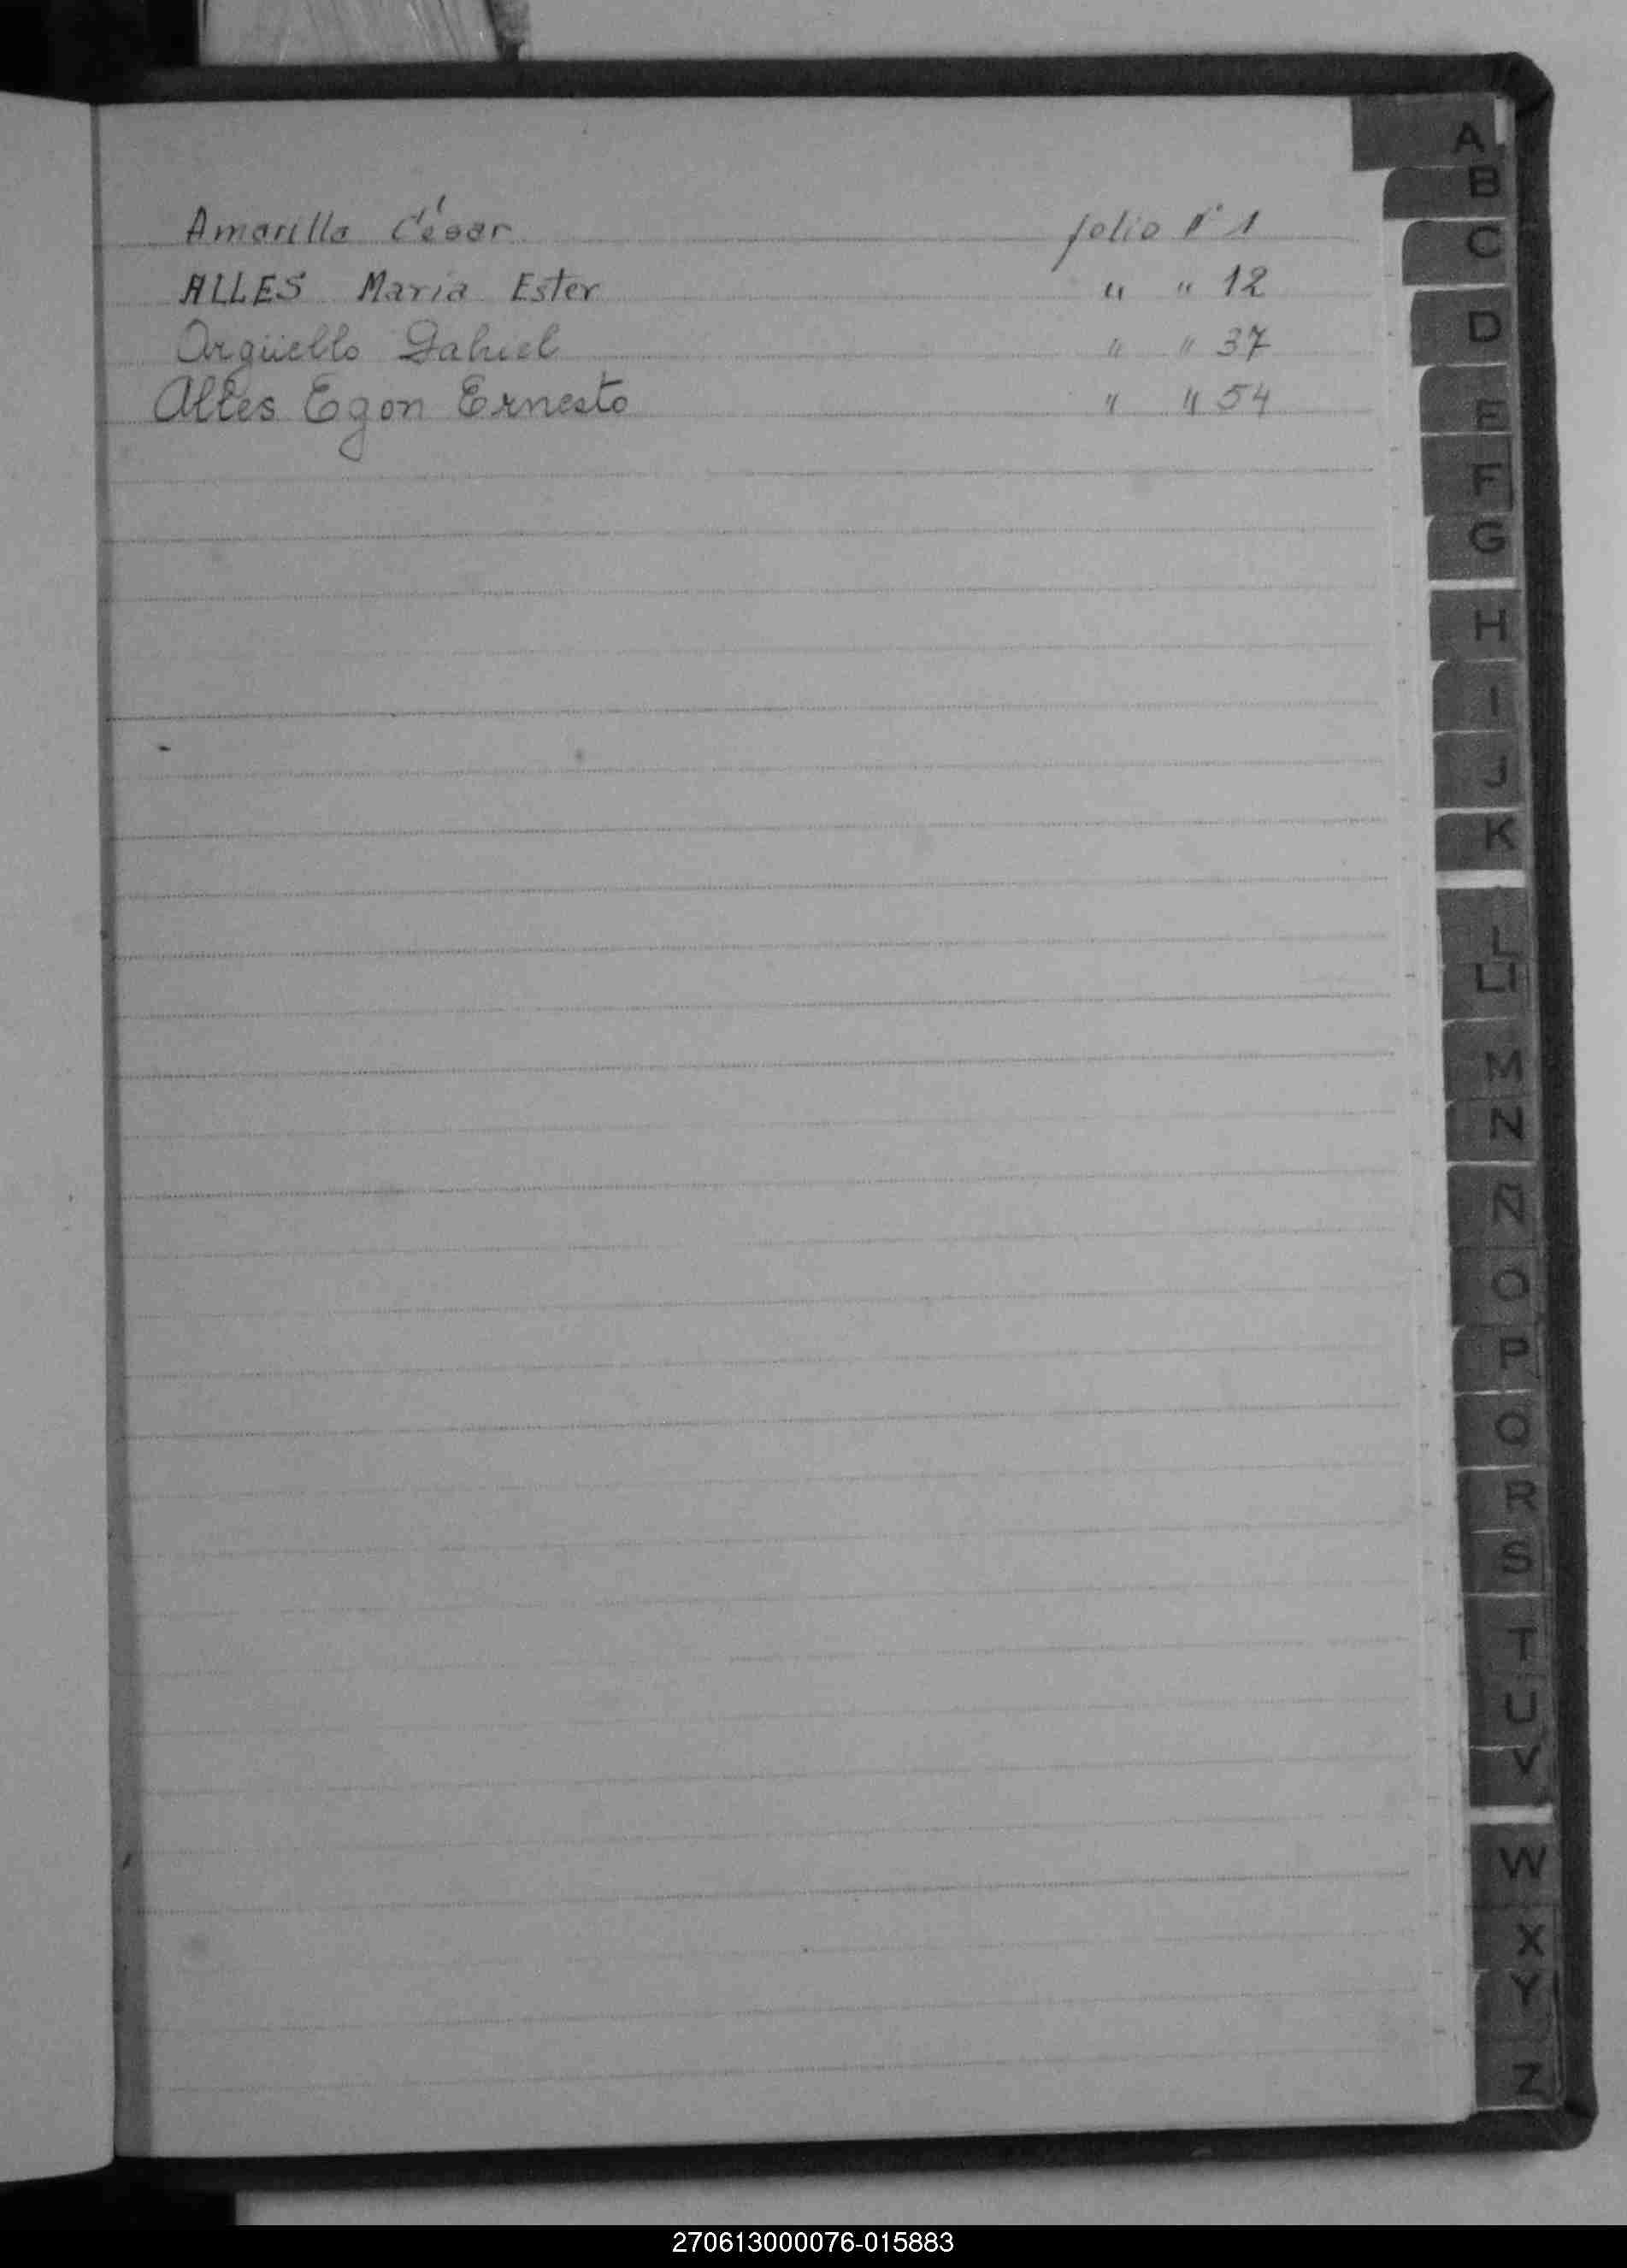 Amarilla César folio Nº 1
ALLES María Ester " " 12
Argüello Gabriel " " 37
Alles Egon Ernesto " " 54
A
B
C
D
E
F
G
H
I
J
K
L
Ll
M
N
Ñ
O
P
Q
R
S
T
U
V
W
X
Y
Z
270613000076-015883